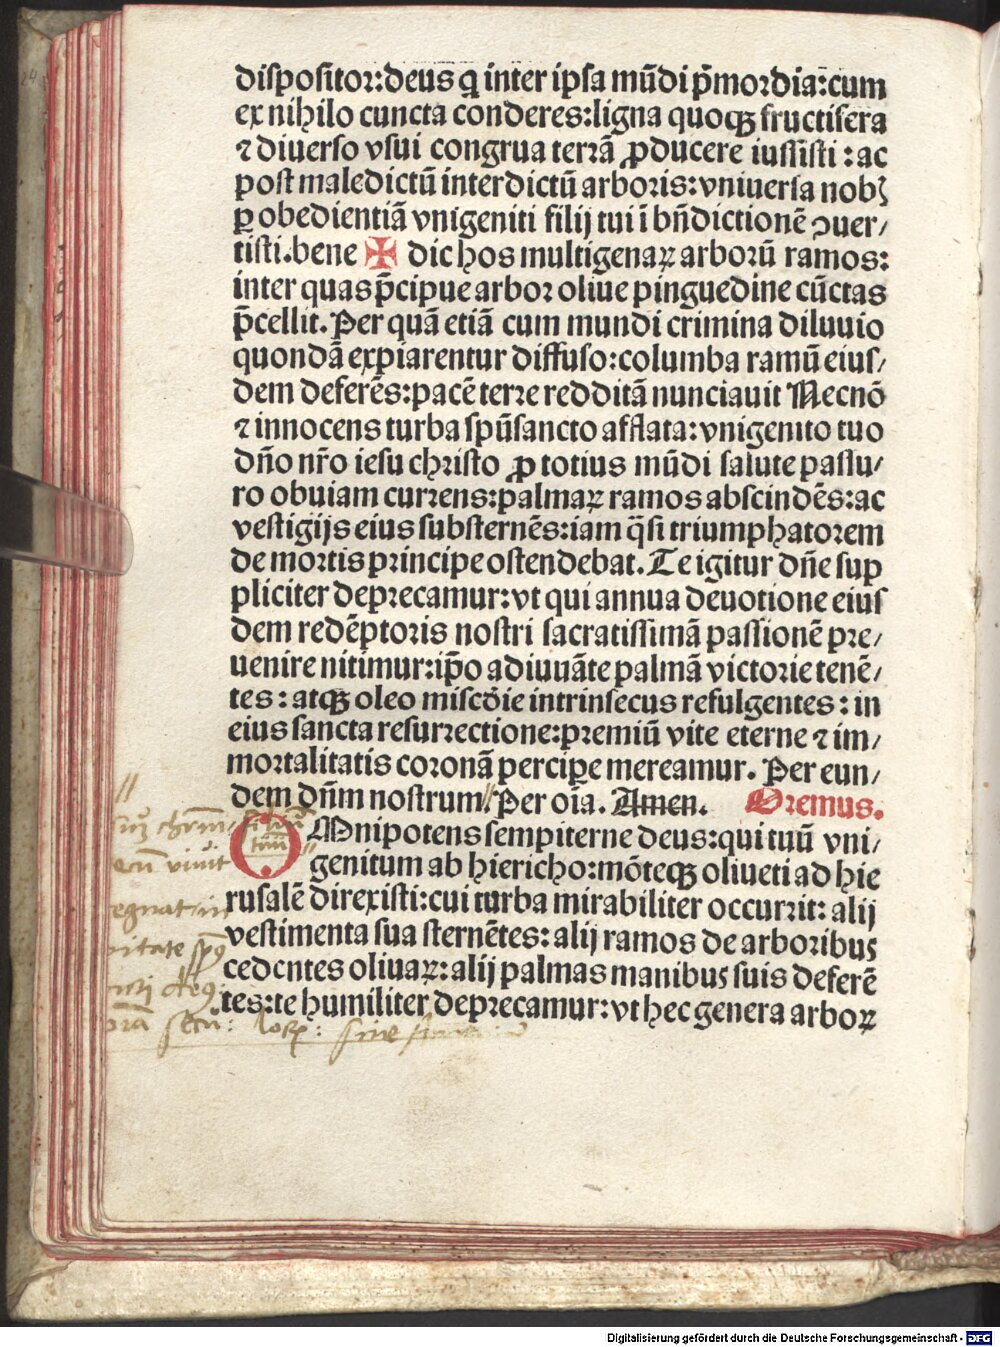 dispositor:deus ꝗ inter ipsa mūdi p̄mordia:cum
ex nihilo cuncta conderes:ligna quoqꝫ fructifera
⁊ diuerso vsui congrua terrā ꝓducere iussisti : ac
post maledictū interdictū arboris:vniuersa nobꝫ
ꝑ obedientiā vnigeniti filij tui ī bn̄dictionē ꝯuer/
tisti.bene ✠ dic hos multigenaꝝ arborū ramos:
inter quas p̄cipue arbor oliue pinguedine cūctas
p̄cellit. Per quā etiā cum mundi crimina diluuio
quondā expiarentur diffuso:columba ramū eius/
dem deferēs:pacē terre redditā nunciauit Necnō
⁊ innocens turba spūsancto afflata:vnigenito tuo
dn̄o nr̄o iesu christo ꝓ totius mūdi salute passu/
ro obuiam currens:palmaꝝ ramos abscindēs:ac
vestigijs eius substernēs:iam q̄si triumphatorem
de mortis principe ostendebat. Te igitur dn̄e sup
pliciter deprecamur:vt qui annua deuotione eius
dem redēptoris nostri sacratissimā passionē pre/
uenire nitimur:ip̄o adiuuāte palmā victorie tenē/
tes : atqꝫ oleo miscd̄ie intrinsecus refulgentes : in
eius sancta resurrectione:premiū vite eterne ⁊ im/
mortalitatis coronā percipe mereamur. Per eun/
dem dn̄m nostrum// Per oīa. Amen. Oremus.
OMnipotens sempiterne deus:qui tuū vni/
genitum ab hiericho:mōteqꝫ oliueti ad hie
rusalē direxisti:cui turba mirabiliter occurrit: alij
vestimenta sua sternētes: alij ramos de arboribus
cedentes oliuaꝝ: alij palmas manibus suis deferē
tes:te humiliter deprecamur:vt hec genera arboꝝ
//
filiū
tuū
vivit
egnat in
nitate